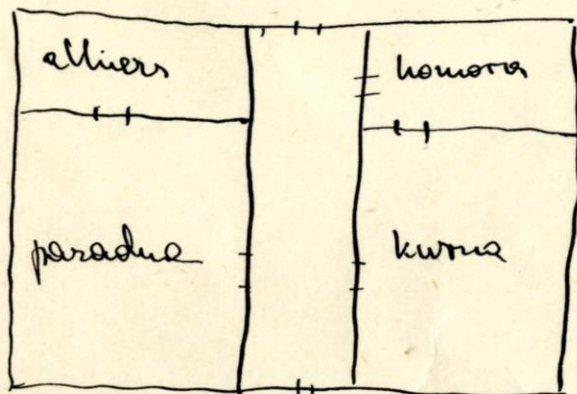 alkierz
komora
paradna
kurna